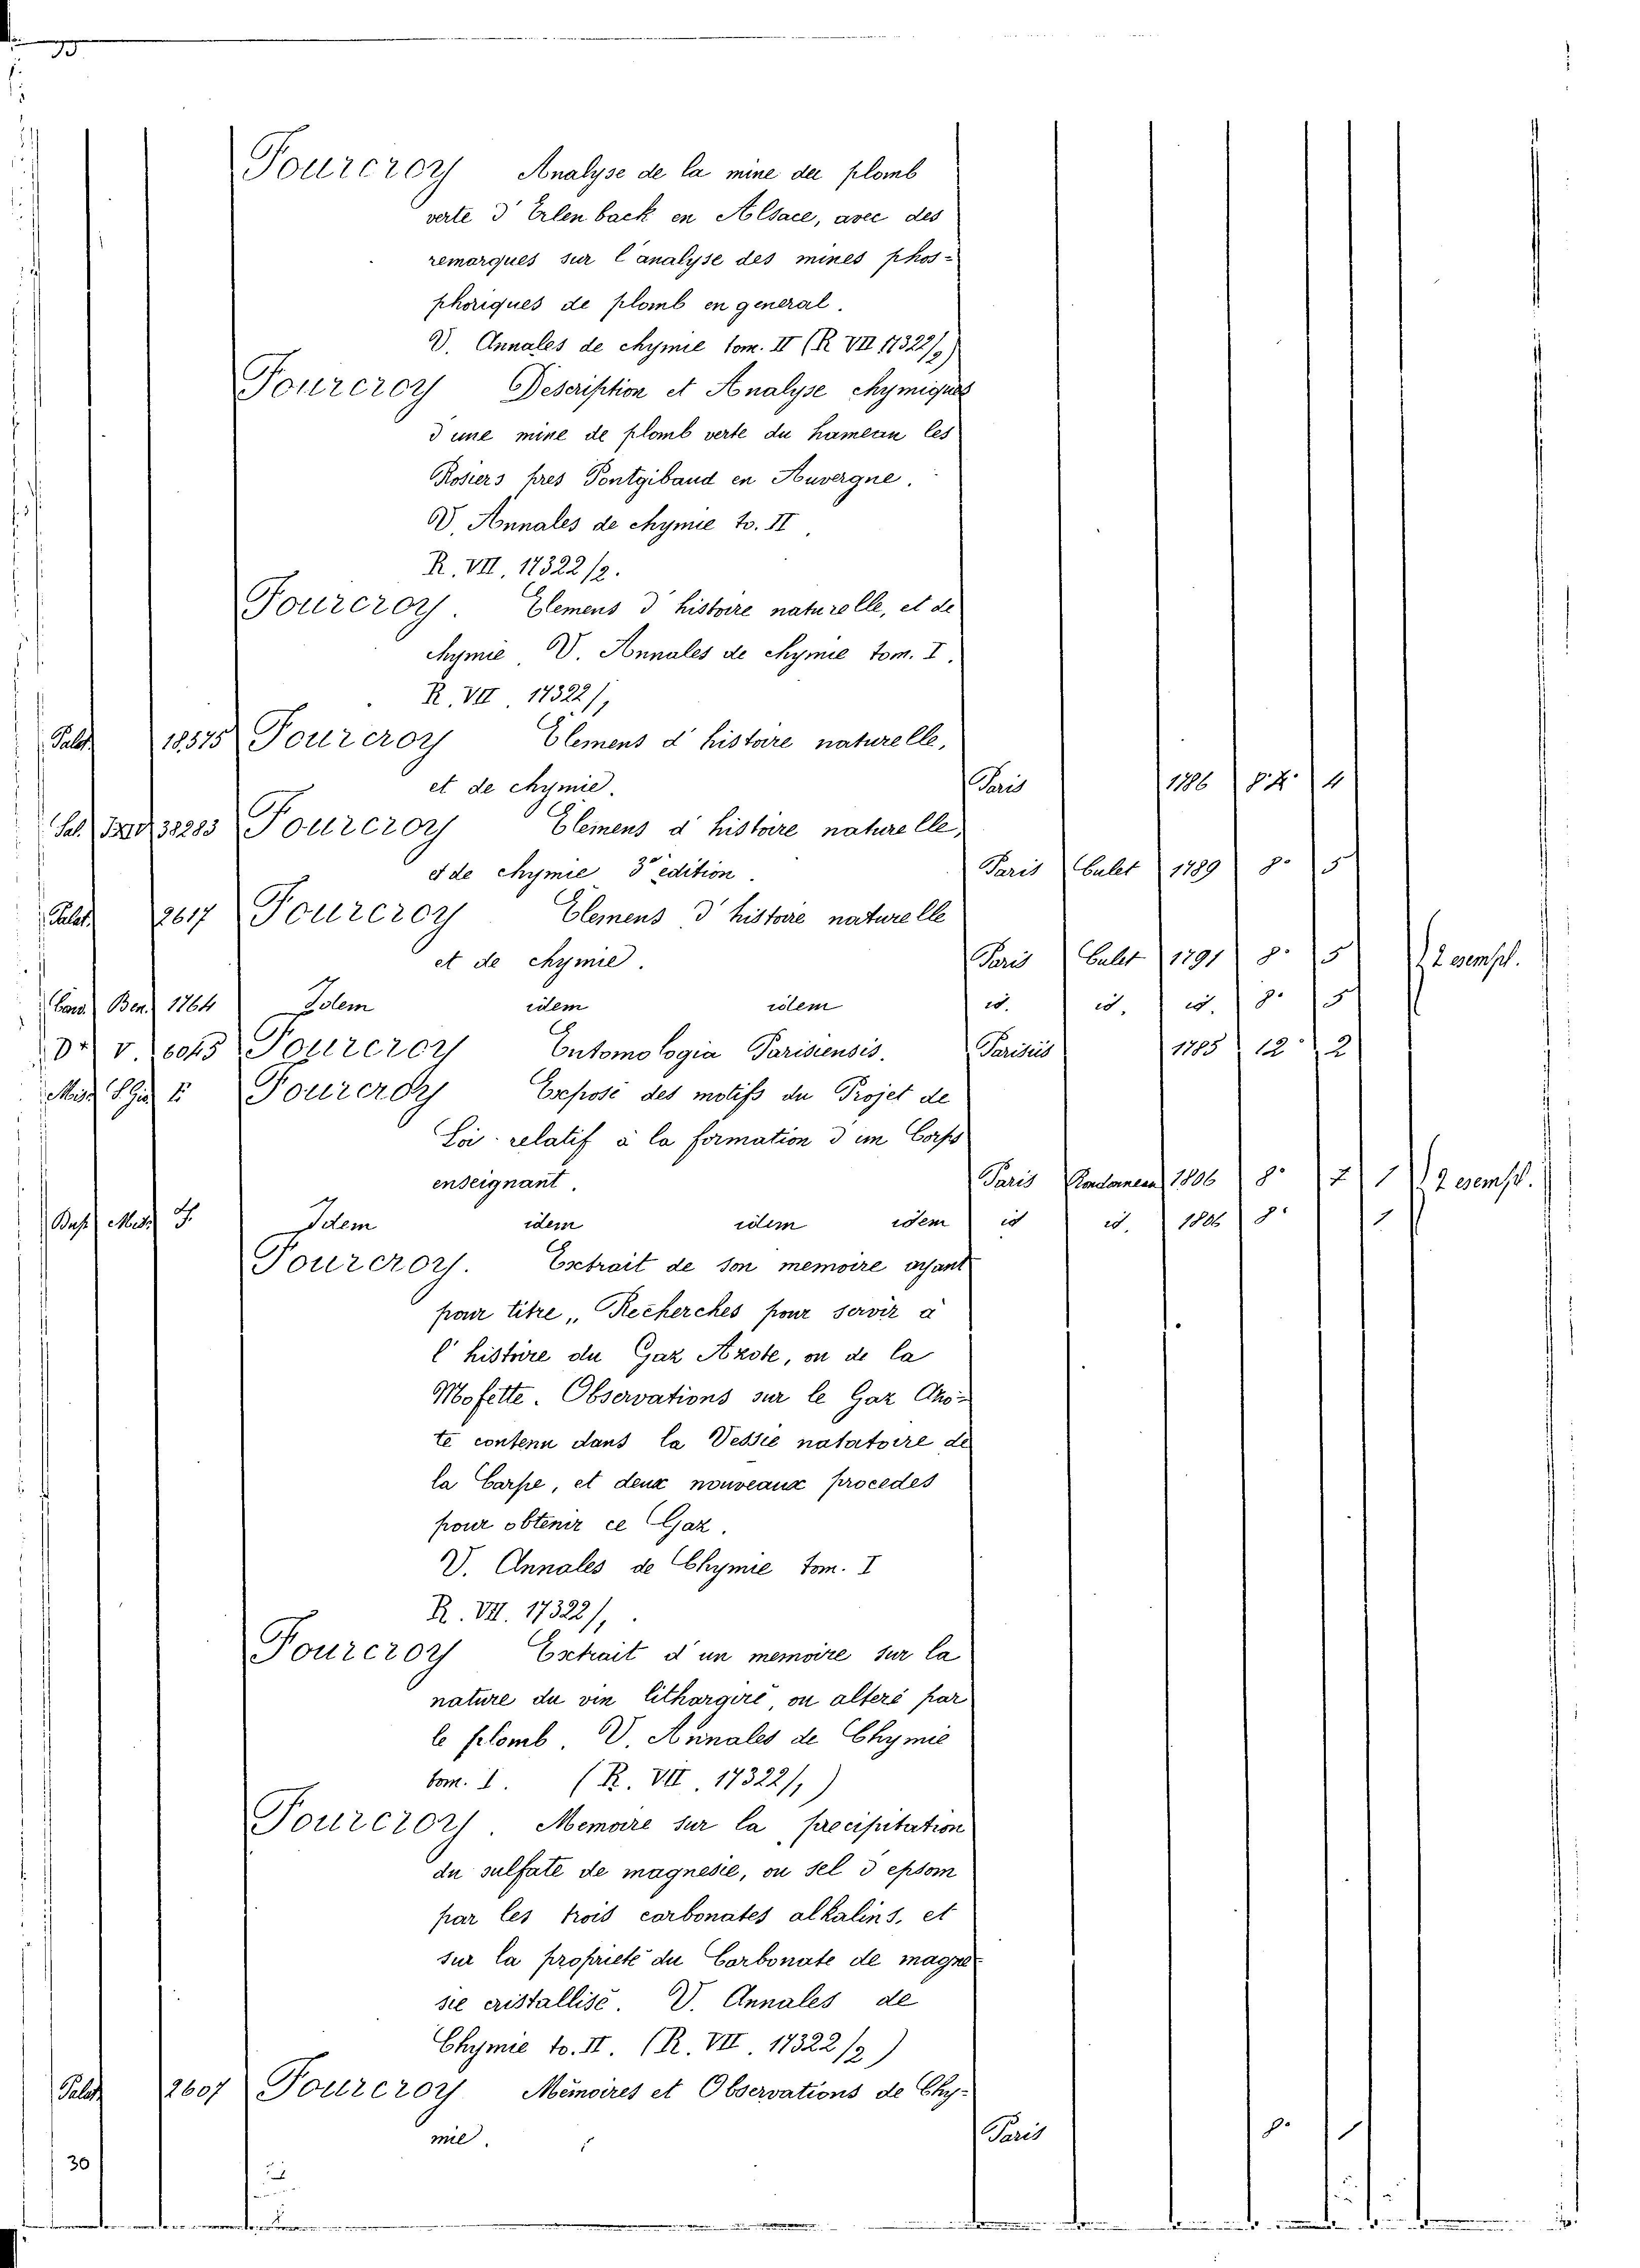 Fourcroy Analyse de la mine de plomb
verte d' Erlenback en Alsace, avec des
remarques sur l'analyse des mines phos-
phoriques de plomb en general.
V. Annales de chymie tom. II (R VII 17322/2)
Fourcroy Description et Analyse chymiques
d'une mine de plomb verte du hameau les
Rosiers pres Pontgibaud en Auvergne.
V. Annales de chymie to. II.
R. VII. 17322/2.
Fourcroy. Elemens d' histoire naturelle, et de
chymie, V. Annales de chymie tom. I.
R. VII. 17322/1
Palat. 18575 Fourcroy Elemens d' histoire naturelle,
et de chymie. Paris 1786 8.º 4
Sal. 38283 Fourcroy Elemens d' histoire naturelle,
et de chymie 3.e edition. Paris Culet 1789 8.º 5
Palat. 2617 Fourcroy Elemens d' histoire naturelle
et de chymie. Paris Culet 1791 8.º 5 2 esempl.
Ben. 1764 Idem idem idem id. id. id. 8.º 5
V 6045 Fourcroy Entomologia Parisiensis. Parisiis 1785 12.º 2
Fourcroy Exposé des motifs du Projet de
Loi relatif à la formation d'un Corps
enseignant. Paris Rondonneau 1806 8.º 1 2 esempl.
Idem idem idem idem id id. 1806 8.º 1
Fourcroy. Extrait de son memoire ayant
pour titre „ Recherches pour servir a
l' histoire du Gaz Azote, ou de la
Mofette. Observations sur le Gaz Azo-
te contenu dans la Vessie natatoire de
la Carpe, et deux nouveaux procedes
pour obtenir ce Gaz.
V. Annales de Chymie tom. I
R. VII. 17322/1.
Fourcroy Extrait d' un memoire sur la
nature du vin lithargiré, ou alteré par
le plomb. V. Annales de Chymie
tom. I. (R. VII. 17322/1)
Fourcroy. Memoire sur la precipitation
du sulfate de magnesie, ou sel d' epsom
par les trois carbonates alkalins, et
sur la proprieté du Carbonate de magne-
sie cristallisé. V. Annales de
Chymie to. II. (R. VII. 17322/2)
Palat. 2607 Fourcroy Mémoires et Observations de Chy-
mie. Paris 8.º 1
30